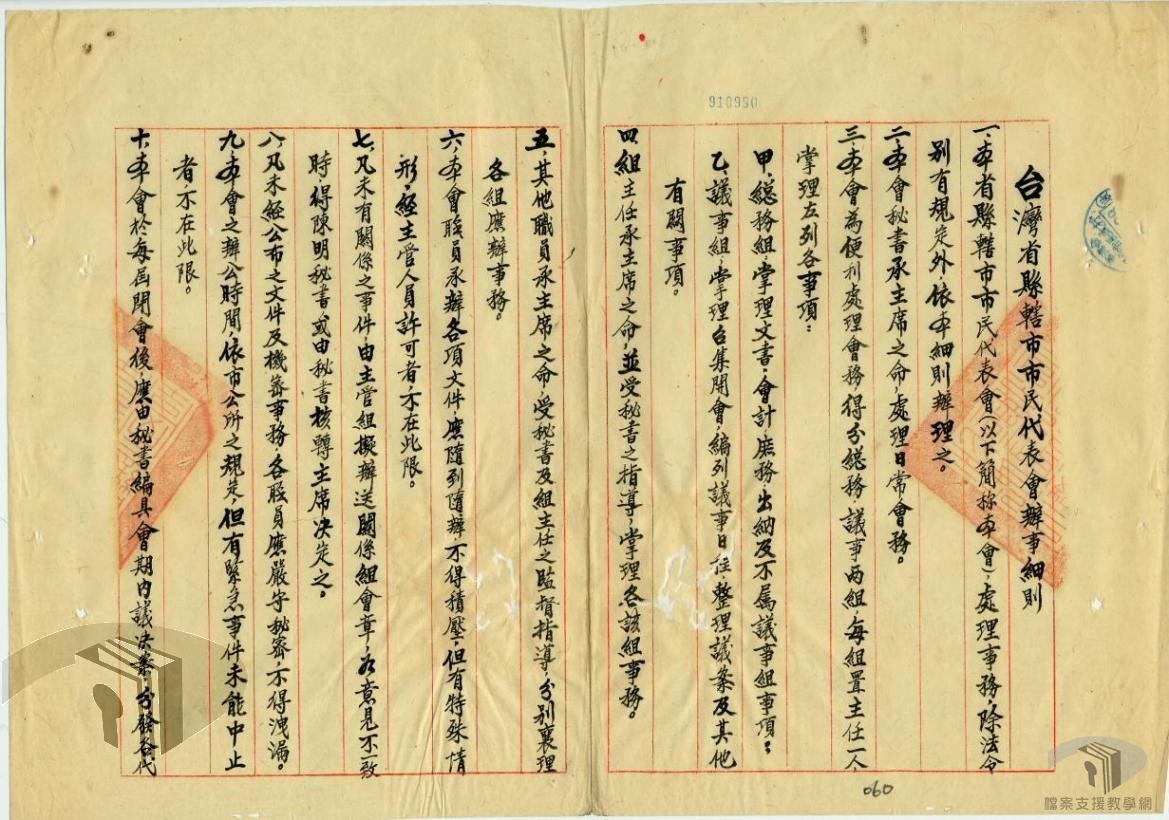 910950
台灣省縣轄市市民代表會辦事細則
一、本省縣轄市市民代表會（以下簡称本會）處理事務，除法令
别有規定外，依本細則辦理之。
二、本會秘書承主席之命，處理日常會務。
三、本會為便利處理會務，得分総務、議事两組，每組置主任一人，
掌理左列各事項：
甲、総務組，掌理文書，會計庶務出納及不属議事組事項：
乙、議事組，掌理召集開會，編列議事日程，整理議案及其他
有關事項。
四、組主任承主席之命，並受秘書之指導，掌理各該組事務。
五、其他職員承主席之命，受秘書及組主任之監督指導，分别襄理
各組應辦事務。
六、本會職員承辦各項文件，應随到随辦，不得積壓，但有特殊情
形，經主管人員許可者，不在此限。
七、凡未有關係之事件，由主管組擬辦送關係組會章，如意見不一致
時，得陳明秘書，或由秘書核轉主席决定之。
八、凡未經公布之文件及機密事務，各職員應嚴守秘密，不得洩漏。
九、本會之辦公時間，依市公所之規定，但有緊急事件未能中止
者，不在此限。
十、本會於每屆閉會後，應由秘書編具會期内議决案，分發各代
060
檔案支援教學網